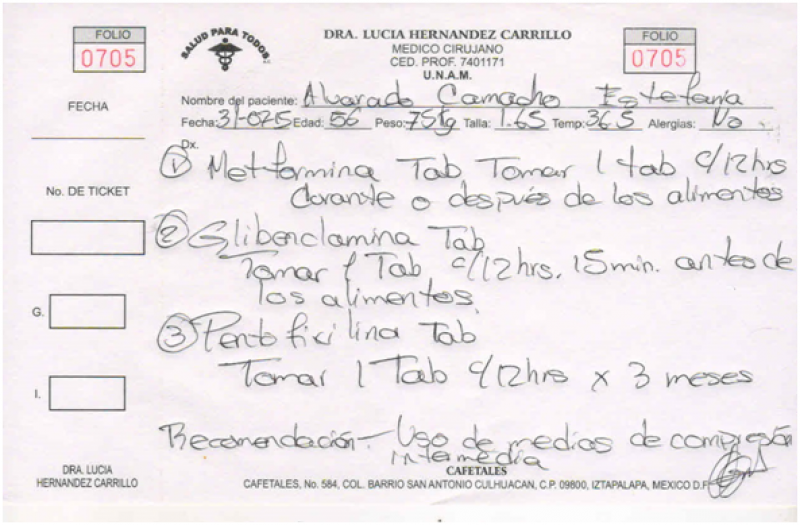 FOLIO
0705
SALUD PARA TODOS
DRA. LUCIA HERNANDEZ CARRILLO
MEDICO CIRUJANO
CED. PROF. 7401171
U.N.A.M.
FOLIO
0705
FECHA
Nombre del paciente: Alvarado Camacho Estefania
Fecha: 31-0715 Edad: 56 Peso: 75kg Talla: 1.65 Temp: 36.5 Alergias: No
Dx.
① Metformina Tab Tomar 1 tab c/12hrs
durante o después de los alimentos
No. DE TICKET
② Glibenclamina Tab
Tomar 1 Tab c/12hrs, 15 min. antes de
los alimentos.
G.
③ Pentofixilina Tab
Tomar 1 Tab c/12hrs x 3 meses
I.
Recomendación - Uso de medias de compresión
intermedia
DRA. LUCIA
HERNANDEZ CARRILLO
CAFETALES
CAFETALES, No. 584, COL. BARRIO SAN ANTONIO CULHUACAN, C.P. 09800, IZTAPALAPA, MEXICO D.F.